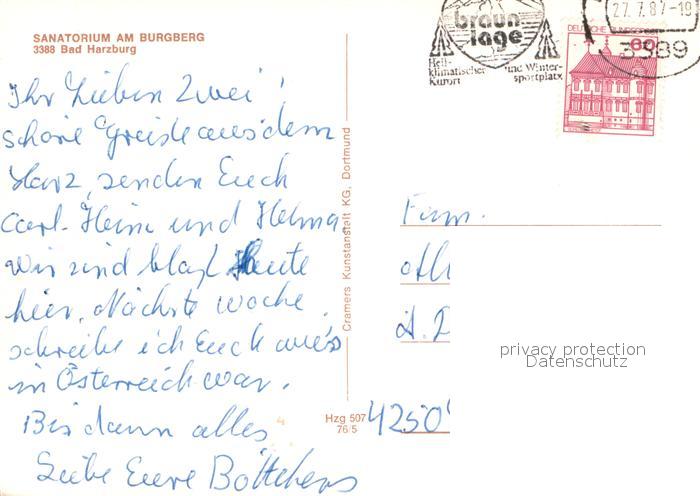 SANATORIUM AM BURGBERG
3388 Bad Harzburg
Ihr Lieben Zwei!
schöne Grüsse aus dem
Harz, senden Euch
Carl-Heinz und Helma
Wir sind bloß heute
hier. Nächste Woche
schreibe ich Euch wie's
in Österreich war.
Bis dann alles
Liebe Eure Böttchers
Cramers Kunstanstalt KG, Dortmund
Hzg 507
76/5
braun
lage
Heil-
klimatischer
Kurort
und Winter-
sportplatz
27.7.87-19
3389
DEUTSCHE BUNDESPOST
60
Fam.
4250
privacy protection
Datenschutz